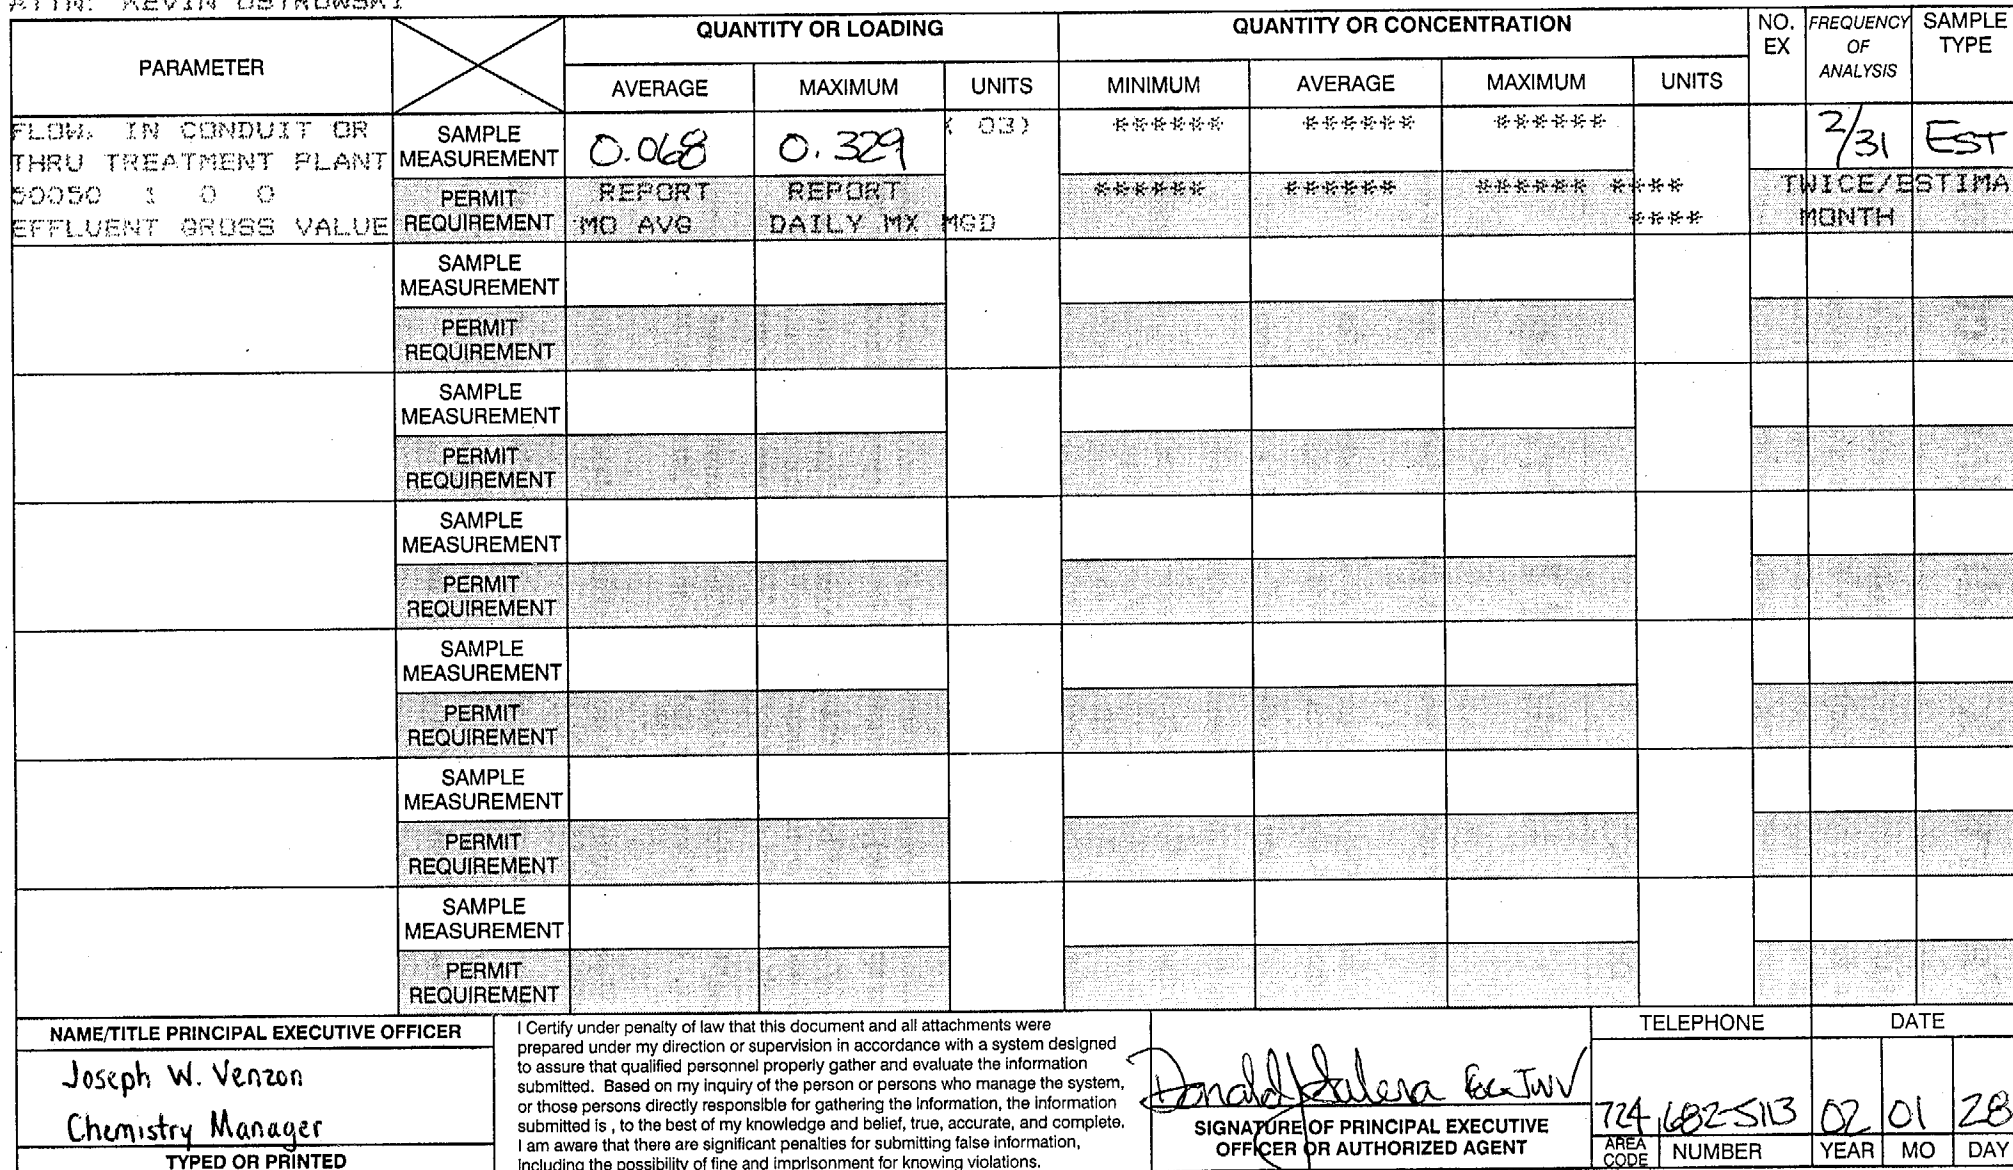 ATTN: KEVIN OSTROWSKI
PARAMETER
QUANTITY OR LOADING
QUANTITY OR CONCENTRATION
NO. EX
FREQUENCY OF ANALYSIS
SAMPLE TYPE
AVERAGE MAXIMUM UNITS MINIMUM AVERAGE MAXIMUM UNITS
FLOW, IN CONDUIT OR
THRU TREATMENT PLANT
50050 1 0 0
EFFLUENT GROSS VALUE
SAMPLE MEASUREMENT 0.068 0.329 ( 03) ****** ****** ****** 2/31 EST
PERMIT REQUIREMENT REPORT REPORT ****** ****** ****** **** TWICE/ESTIMA
MO AVG DAILY MX MGD **** MONTH
SAMPLE MEASUREMENT
PERMIT REQUIREMENT
SAMPLE MEASUREMENT
PERMIT REQUIREMENT
SAMPLE MEASUREMENT
PERMIT REQUIREMENT
SAMPLE MEASUREMENT
PERMIT REQUIREMENT
SAMPLE MEASUREMENT
PERMIT REQUIREMENT
SAMPLE MEASUREMENT
PERMIT REQUIREMENT
NAME/TITLE PRINCIPAL EXECUTIVE OFFICER
Joseph W. Venzon
Chemistry Manager
TYPED OR PRINTED
I Certify under penalty of law that this document and all attachments were
prepared under my direction or supervision in accordance with a system designed
to assure that qualified personnel properly gather and evaluate the information
submitted. Based on my inquiry of the person or persons who manage the system,
or those persons directly responsible for gathering the information, the information
submitted is , to the best of my knowledge and belief, true, accurate, and complete.
I am aware that there are significant penalties for submitting false information,
including the possibility of fine and imprisonment for knowing violations.
Donald J Salera for JWV
SIGNATURE OF PRINCIPAL EXECUTIVE
OFFICER OR AUTHORIZED AGENT
TELEPHONE
724 682-5113
AREA CODE NUMBER
DATE
02 01 28
YEAR MO DAY